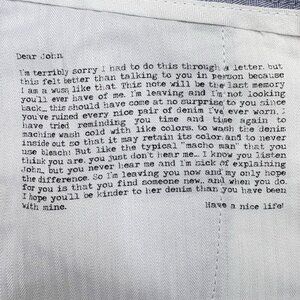 Dear John
I'm terribly sorry I had to do this through a letter, but
this felt better than talking to you in person because
I am a wuss like that This note will be the last memory
you'll ever have of me. I'm leaving and I'm not looking
back.. this should have come at no surprise to you since
you've ruined every nice pair of denim I've ever worn. I
have tried reminding you time and time again to
machine wash cold with like colors, to wash the denim
inside out so that it may retain its color, and to never
use bleach! But like the typical "macho man" that you
think you are, you just don't hear me.. I know you listen
John,, but you never hear me and I'm sick of explaining
the difference. So I'm leaving you now and my only hope
for you is that you find someone new.. and when you do,
I hope you'll be kinder to her denim than you have been
with mine.
Have a nice life!